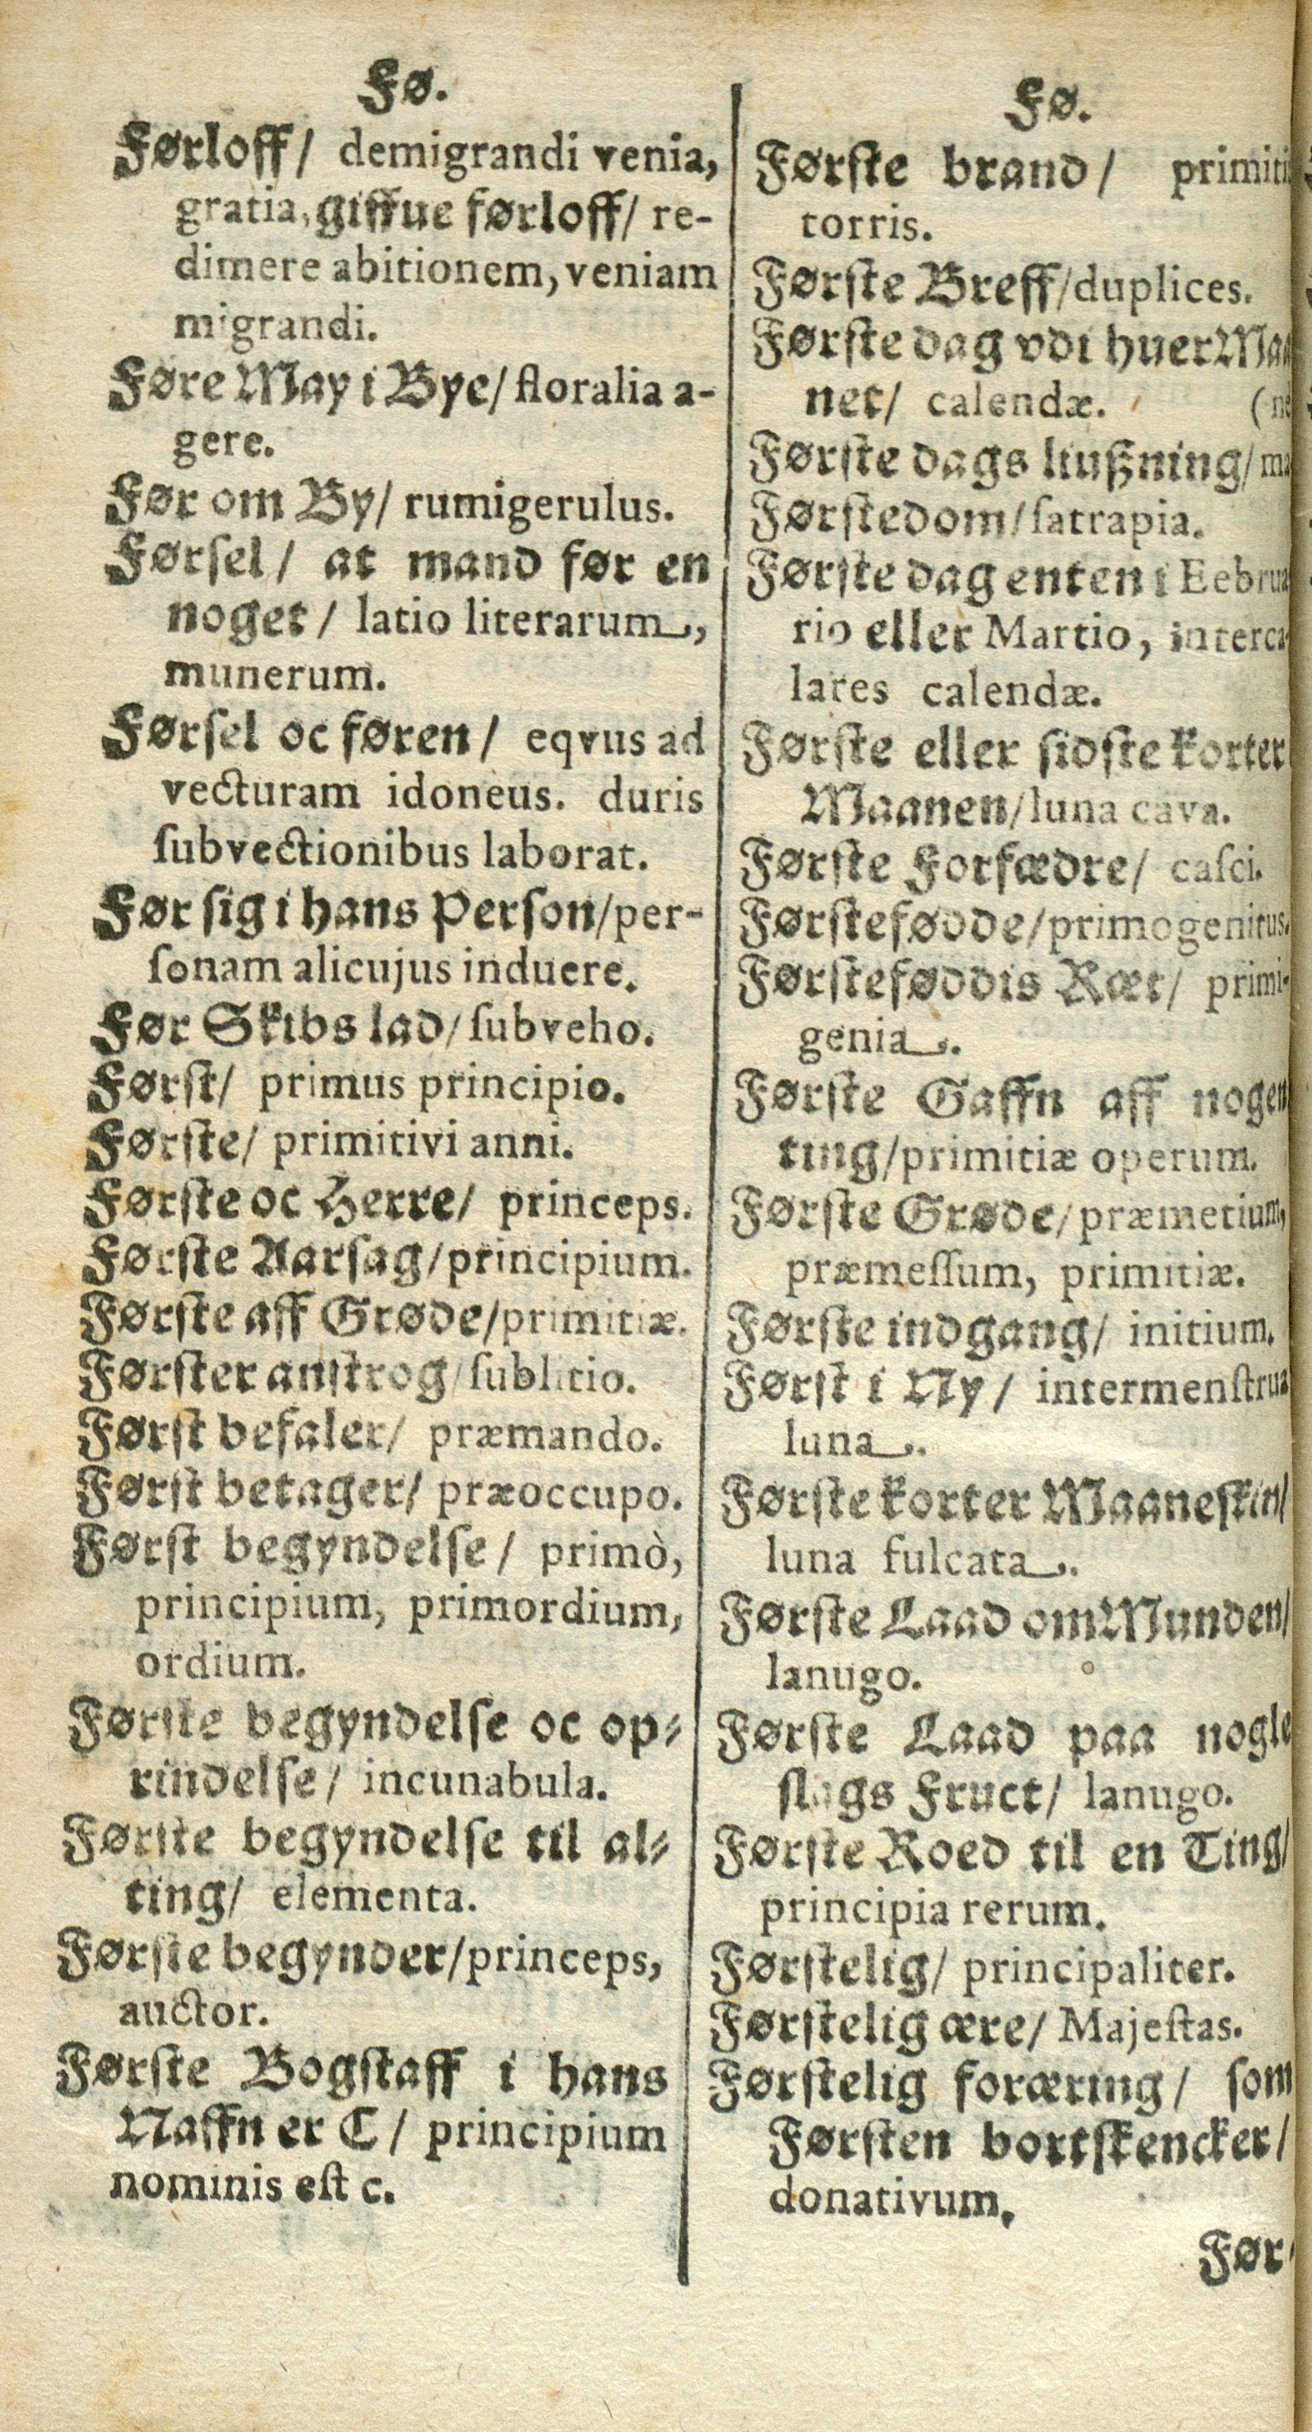 Fø.
Førloff/ demigrandi venia,
gratia, giffue førloff/ re-
dimere abitionem, veniam
migrandi.
Føre May i Bye/ floralia a-
gere.
Før om By/ rumigerulus.
Førſel/ at mand før en
noget/ latio literarum,
munerum.
Førſel oc føren/ eqvus ad
vecturam idoneus. duris
ſubvectionibus laborat.
Før ſig i hans Perſon/per-
ſonam alicujus induere.
Før Skibs lad/ ſubveho.
Førſt/ primus principio.
Førſte/ primitivi anni.
Førſte oc Herre/ princeps.
Førſte Aarſag/principium.
Førſte aff Grøde/primitiæ.
Førſter anſtrog/ſublitio.
Førſt befaler/ præmando.
Førſt betager/ præoccupo.
Førſt begyndelſe/ primò,
principium, primordium,
ordium.
Førſte begyndelſe oc op-
rindelſe/ incunabula.
Førſte begyndelſe til al-
ting/ elementa.
Førſte begynder/princeps,
auctor.
Førſte Bogſtaff i hans
Naffn er C/ principium
nominis eſt c.
Fø.
Førſte brand/ primiti
torris.
Førſte Breff/duplices.
Førſte dag vdi huer Maa
net/ calendæ. (ne
Førſte dags liußning/ ma
Førſtedom/ſatrapia.
Førſte dag enten i Eebrua
rio eller Martio, interca-
lares calendæ.
Førſte eller ſidſte korter
Maanen/luna cava.
Førſte Forfædre/ caſci.
Førſtefødde/primogenitus.
Førſteføddis Ræt/ primi-
genia.
Førſte Gaffn aff nogen
ting/primitiæ operum.
Førſte Grøde/præmetium,
præmeſſum, primitiæ.
Førſte indgang/ initium.
Førſt i Ny/ intermenſtrua
luna.
Førſte korter Maaneſkin/
luna fulcata.
Førſte Laad om Munden/
lanugo.
Førſte Laad paa nogle
ſlags Fruct/ lanugo.
Førſte Roed til en Ting/
principia rerum.
Førſtelig/ principaliter.
Førſtelig ære/ Majeſtas.
Førſtelig foræring/ ſom
Førſten bortſkencker/
donativum.
Før-